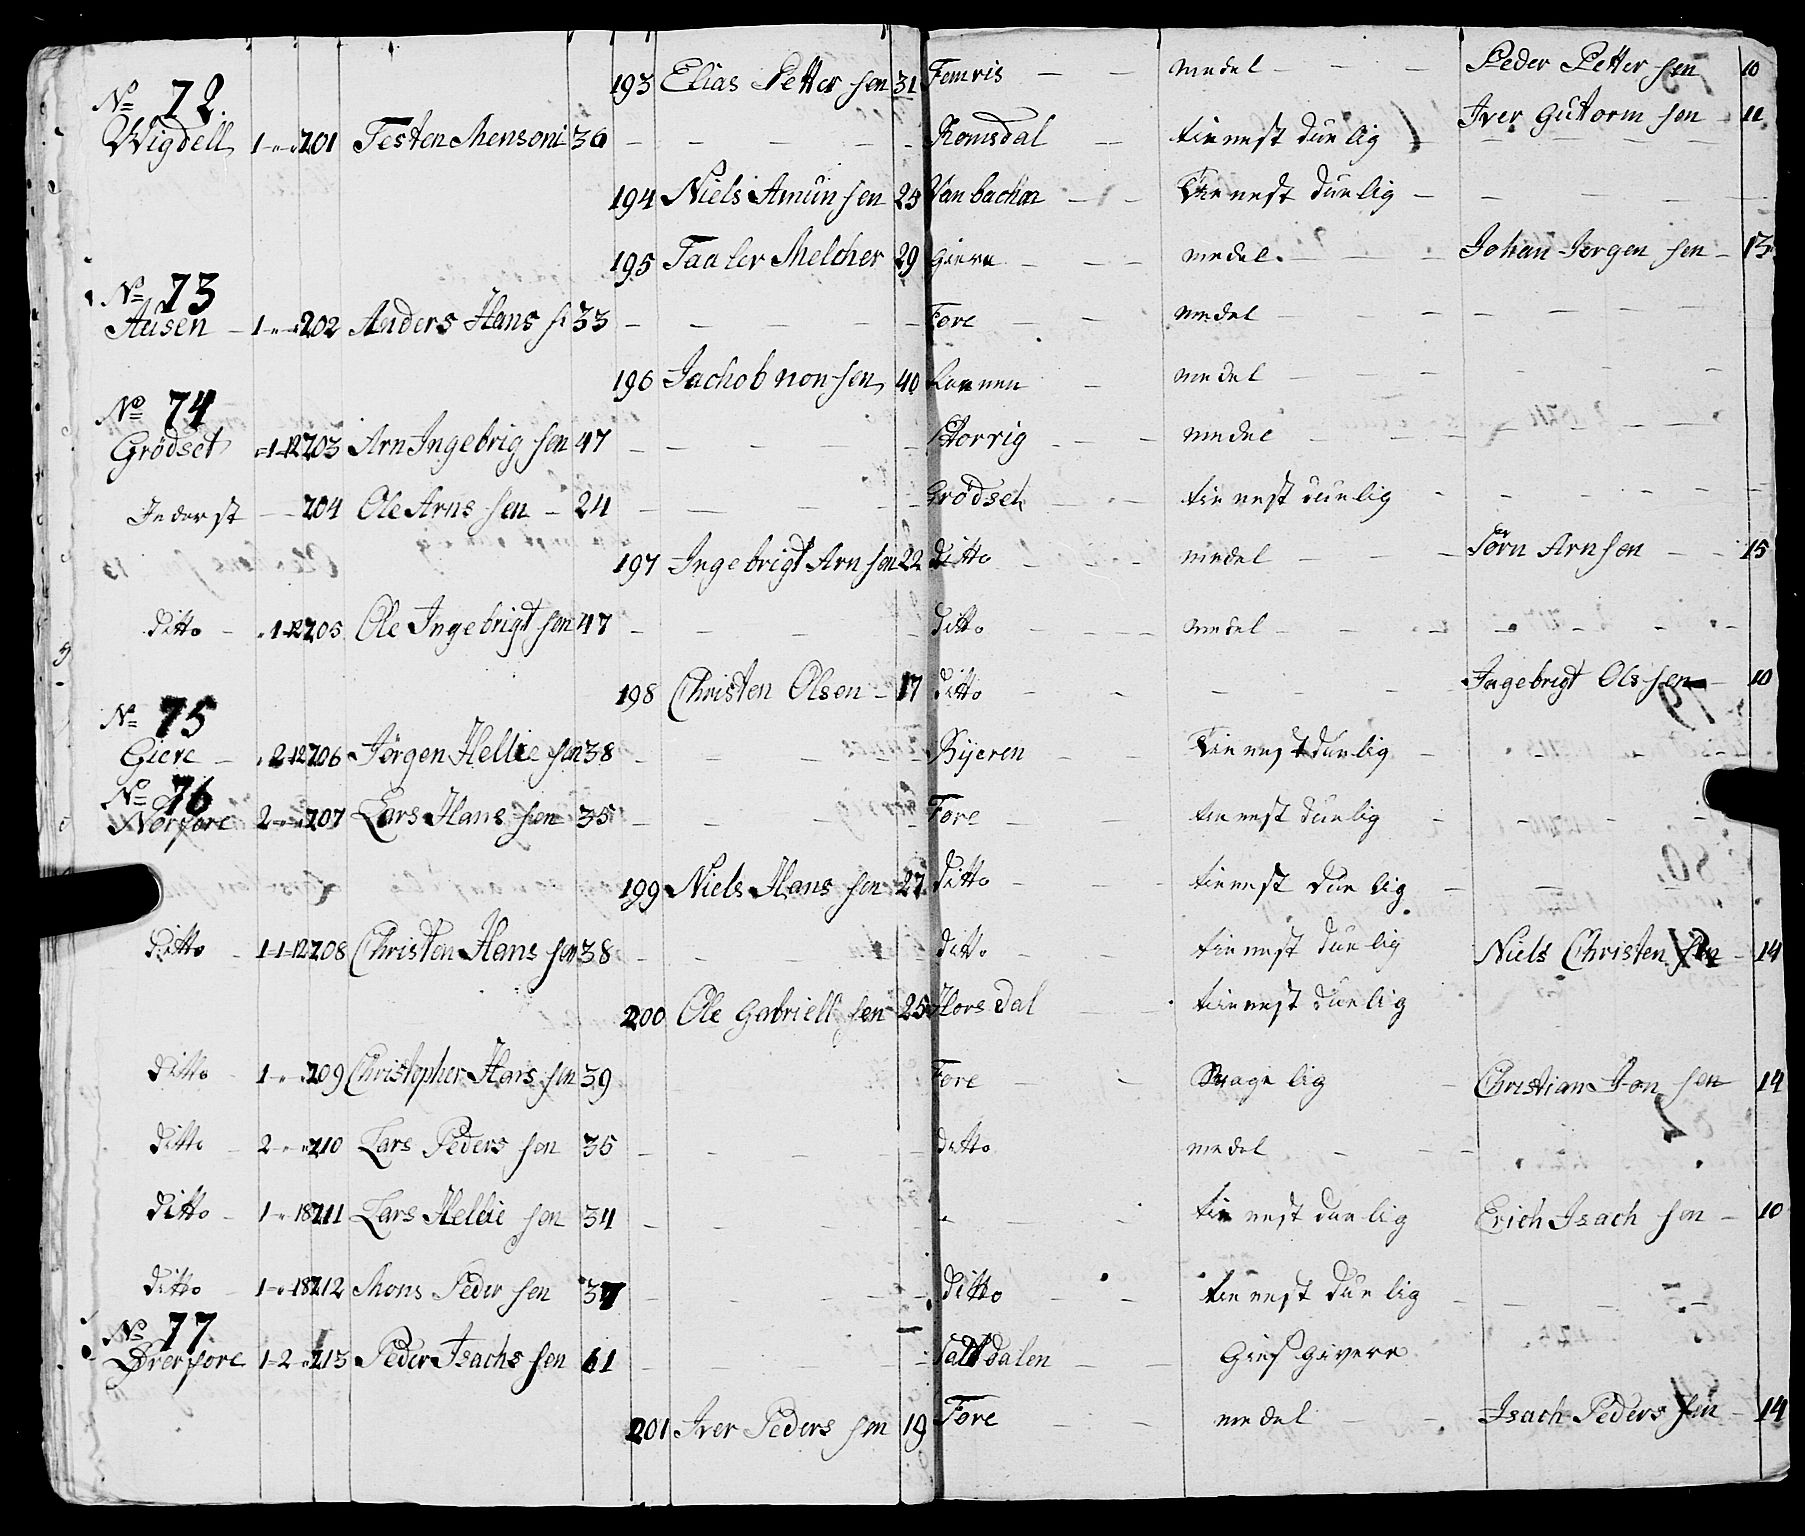 193 Elias Petter sen 31 Femris — — medel — — Peder Petter sen 10
No 72.
Iver Gutorm sen 11
Wigdell 1 - " - 201 Testen Mensoni 30 — — — Romsdal — tienest dunlig — — —
194 Niels Amun sen 25 — — Tienest dunlig — — —
195 Taaler Melcher 29 Giere — — medel. — — Johan Jorgen sen — 13
No 73
Ausen — 1 - " - 202 Anders Hans s 33 — — — Fore — — medel — — —
196 Jachob non sen 40 — medel — — —
No 74
Grödset 1-12 203 Arn Ingebrig sen 47 — — — Storrig — — medel — — —
Inderst — 204 Ole Arns sen — 24 — — — Grödset — tienest dunlig — — —
197 Ingebrigt Arn sen 22 Ditto — — medel — — Sørn Arnsen — — 15
Ditto — 1-12 205 Ole Ingebrigt sen 47 — — — Ditto — — medel — — —
198 Christen Olsen — 17 Ditto — — — Ingebrigt Olssen — 10
No 75
Giere — 2-12 206 Jörgen Hellie sen 38 — — — Bijeren — — Tienest dunlig — — —
No 76
Norfore 2 - " - 207 Lars Hans sen 35 — — — Fore — — tienest dunlig — — —
199 Niels Hans sen 27 Ditto — — tienest dunlig — — —
Ditto — 1-1-12 208 Christen Hans sen 38 — — — Ditto — — tienest dunlig Niels Christen sen — 14
200 Ole Gabriell sen 25 Horsdal — — tienest dunlig
Ditto — 1 - " - 209 Christopher Hans sen 39 Fore — — Svage lig — Christian Jon sen 14
Ditto — 2 - " - 210 Lars Peders sen 35 — — — Ditto medel — — —
Ditto — 1 - " 18 211 Lars Hellie sen 34 — — — tienest dunlig Erich Isach sen — 10
Ditto — 1 - " 18 212 Mons Peder sen 37 — — — Ditto — — tienest dunlig — — —
No 77
Ørerfore 1-2 213 Peder Isachs sen 61 — — — Saltdalen — — Gies givere
201 Iver Peders sen 19 Fore — — medel — — Isach Peders sen — 14